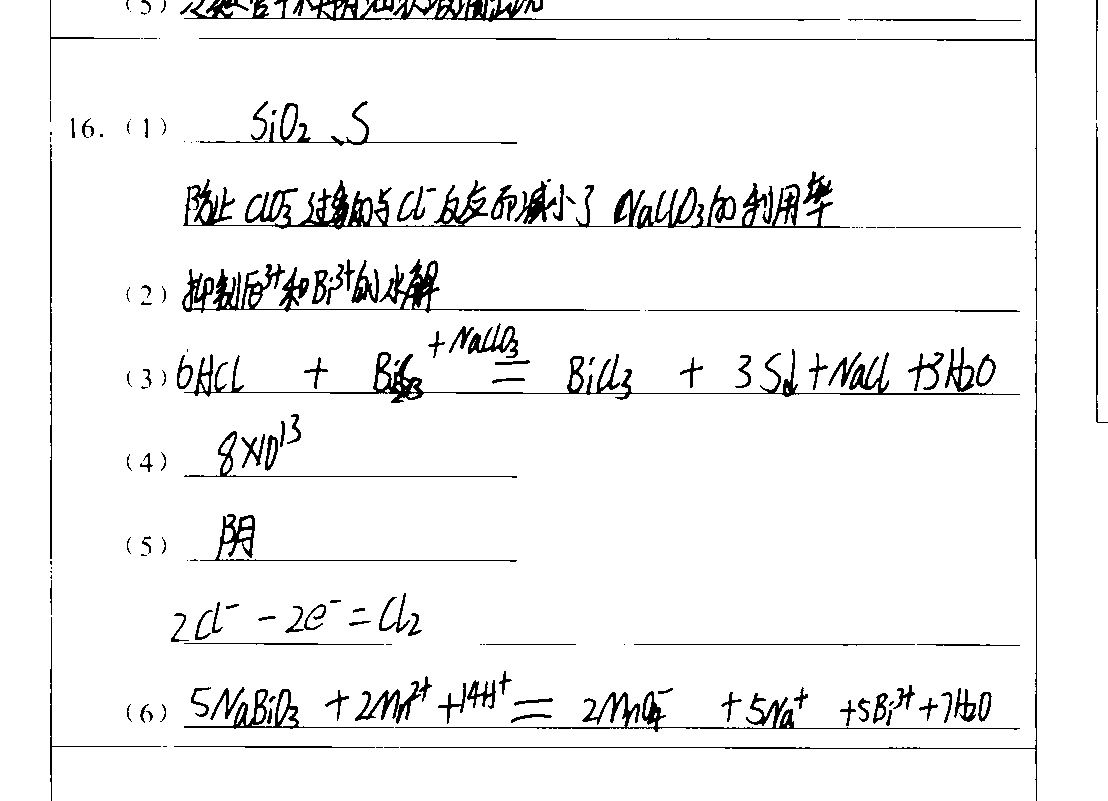 (5)
16. (1) SiO₂、S
防止 ClO₃⁻ 过多的与Cl⁻反应而减小了 NaClO₃的利用率
(2) 抑制Fe³⁺和Bi³⁺的水解
(3) 6HCl + Bi₂S₃ +NaClO₃ = BiCl₃ + 3S↓+NaCl +3H₂O
(4) 8×10¹³
(5) 阴
2Cl⁻ - 2e⁻ = Cl₂
(6) 5NaBiO₃ + 2Mn²⁺ +14H⁺ = 2MnO₄⁻ + 5Na⁺ +5Bi³⁺ +7H₂O